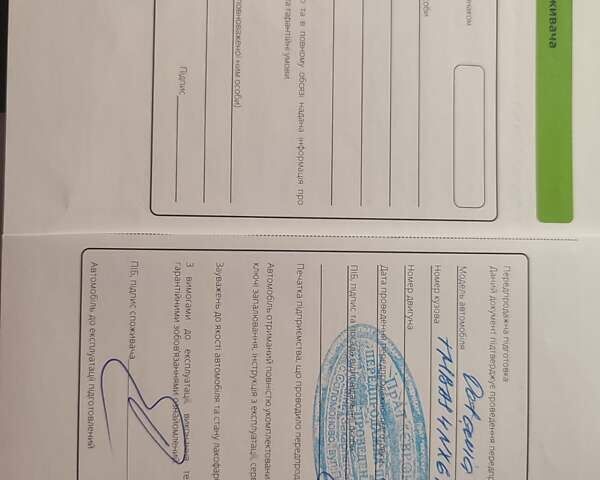 живача
знаком
соби
ю та в повному обсязі надана інформація про
та гарантійні умови
повноваженої ним особи)
Підпис
Передпродажна підготовка
Даний документ підтверджує проведення передпр
Модель автомобіля Octavia
Номер кузова TMBAH4NX6
Номер двигуна
Дата проведення
ПІБ, підпис та
Печатка підприємства, що проводило передпрод
Автомобіль отриманий повністю укомплектовани
ключі запалювання, інструкція з експлуатації, серв
Зауважень до якості автомобіля та стану лакофарб
З вимогами до експлуатації, виконання те
гарантійними зобов'язаннями ознайомлений
ПІБ, підпис споживача
Автомобіль до експлуатації підготовлений